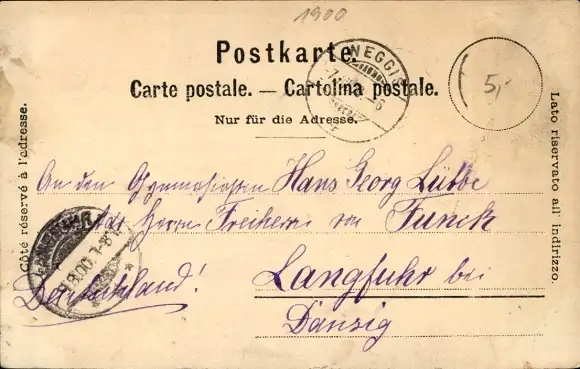 1900
Postkarte.
Carte postale. — Cartolina postale.
Nur für die Adresse.
Côté réservé à l'adresse.
Lato riservato all' indirizzo.
WEGGIS
5,-
An den Gymnasiasten Hans Georg Lübbe
Herrn Freiherrn von Funck
Langfuhr bei
Deutschland!
Danzig
LANGFUHR
8.00